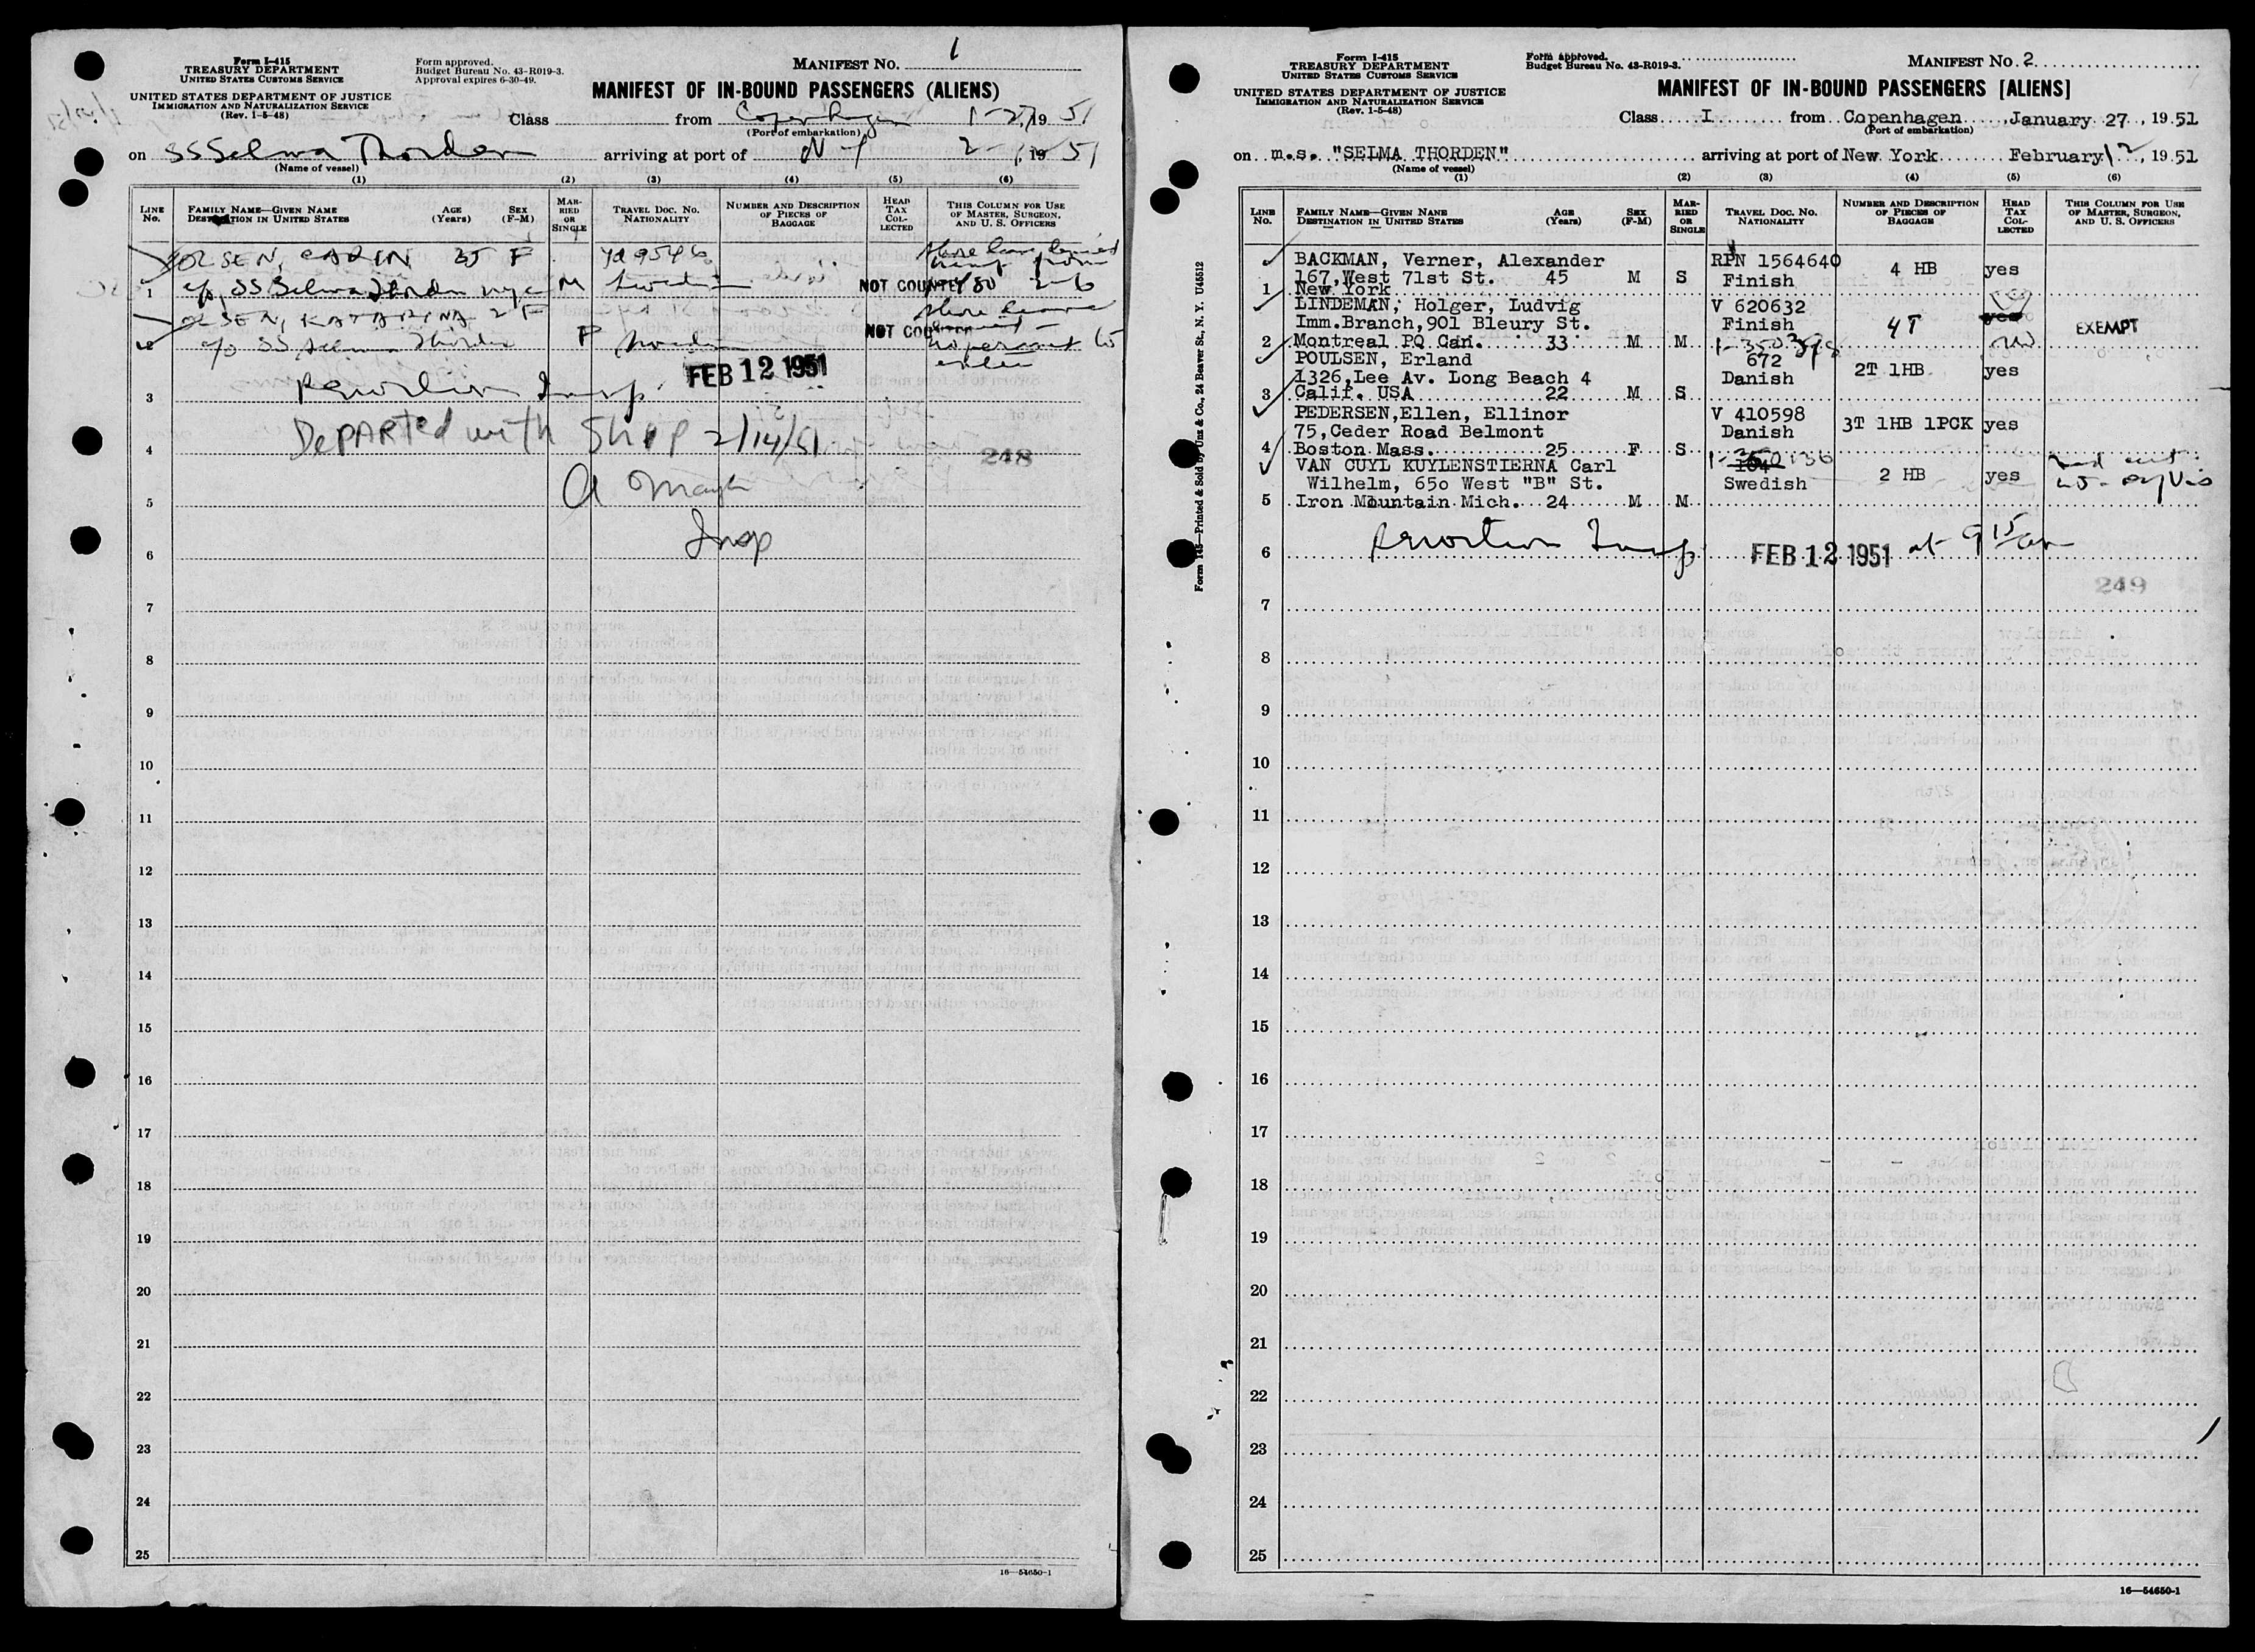 Form I-415
TREASURY DEPARTMENT
UNITED STATES CUSTOMS SERVICE
UNITED STATES DEPARTMENT OF JUSTICE
IMMIGRATION AND NATURALIZATION SERVICE
(Rev. 1-5-48)
Form approved.
Budget Bureau No. 43-R019-3.
Approval expires 6-30-49.
MANIFEST NO. 1
MANIFEST OF IN-BOUND PASSENGERS (ALIENS)
Class from Copenhagen 1-27, 19 51
(Port of embarkation)
on SS Selma Thorden arriving at port of N Y 2- , 19 51
(Name of vessel)
(1) (2) (3) (4) (5) (6)
LINE No.
FAMILY NAME—GIVEN NAME
DESTINATION IN UNITED STATES
AGE (Years)
SEX (F-M)
MARRIED OR SINGLE
TRAVEL DOC. NO.
NATIONALITY
NUMBER AND DESCRIPTION OF PIECES OF BAGGAGE
HEAD TAX COLLECTED
THIS COLUMN FOR USE OF MASTER, SURGEON, AND U. S. OFFICERS
OLSEN, CARIN 35 F
1 c/o SS Selma Thorden nyc M Sweden
OLSEN, KATARINA 2 F
c/o SS Selma Thorden
FEB 12 1951
3
DEPARTED with Ship 2/14/51
4 248
5
Insp
6
7
8
9
10
11
12
13
14
15
16
17
18
19
20
21
22
23
24
25
16—54650-1
Form I-415
TREASURY DEPARTMENT
UNITED STATES CUSTOMS SERVICE
UNITED STATES DEPARTMENT OF JUSTICE
IMMIGRATION AND NATURALIZATION SERVICE
(Rev. 1-5-48)
Form approved.
Budget Bureau No. 43-R019-3.
MANIFEST NO. 2
MANIFEST OF IN-BOUND PASSENGERS [ALIENS]
Class I from Copenhagen, January 27, 19 51
(Port of embarkation)
on m.s. "SELMA THORDEN" arriving at port of New York February 12, 19 51
(Name of vessel)
(1) (2) (3) (4) (5) (6)
LINE No.
FAMILY NAME—GIVEN NAME
DESTINATION IN UNITED STATES
AGE (Years)
SEX (F-M)
MARRIED OR SINGLE
TRAVEL DOC. NO.
NATIONALITY
NUMBER AND DESCRIPTION OF PIECES OF BAGGAGE
HEAD TAX COLLECTED
THIS COLUMN FOR USE OF MASTER, SURGEON, AND U. S. OFFICERS
BACKMAN, Verner, Alexander RPN 1564640
167,West 71st St. 45 M S Finish 4 HB yes
1 New York
LINDEMAN, Holger, Ludvig V 620632
Imm.Branch,901 Bleury St. Finish 4T yes EXEMPT
2 Montreal PQ Can. 33 M M
POULSEN, Erland 672
1326,Lee Av. Long Beach 4 Danish 2T 1HB yes
3 Calif. USA 22 M S
PEDERSEN,Ellen, Ellinor V 410598
75,Ceder Road Belmont Danish 3T 1HB 1PCK yes
4 Boston Mass. 25 F S
VAN CUYL KUYLENSTIERNA Carl
Wilhelm, 650 West "B" St. Swedish 2 HB yes
5 Iron Mountain Mich. 24 M M
6 Insp FEB 12 1951 at 9 15 am
249
7
8
9
10
11
12
13
14
15
16
17
18
19
20
21
22
23
24
25
16—54650-1
Form 145—Printed & Sold by Unz & Co., 24 Beaver St., N. Y. U45512